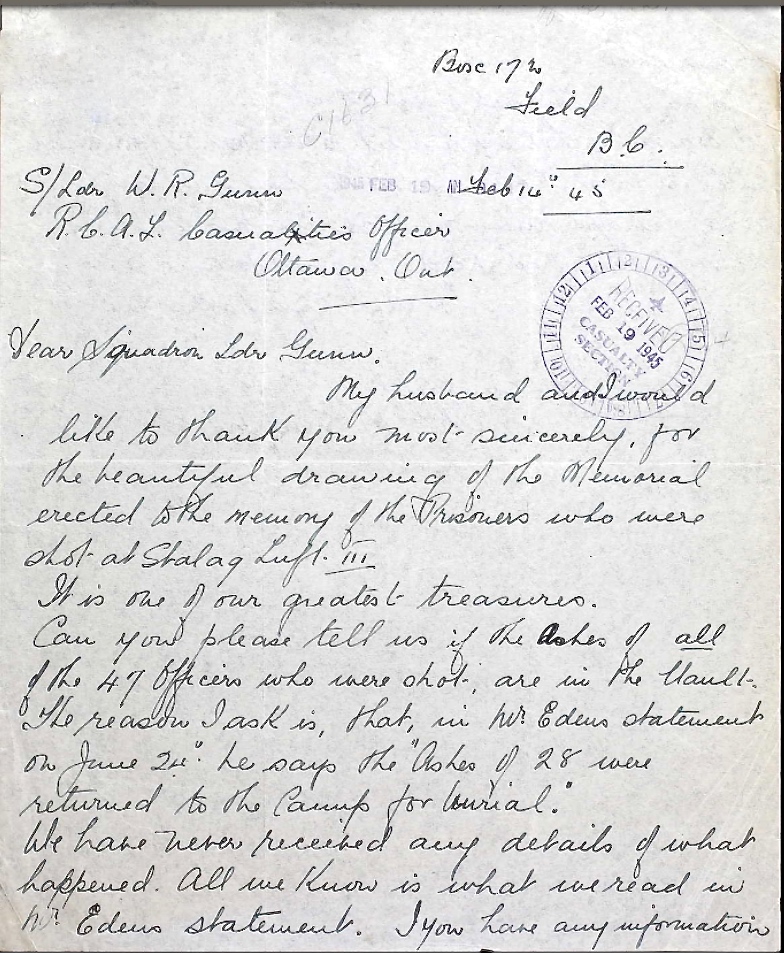 Box 172
Field
B.C.
C1631
S/Ldr W. R. Gunn
FEB. 19 AM Feb 14" 45
R.C.A.F. Casualties Officer
Ottawa. Ont.
RECEIVED
FEB 19 1945
CASUALTY
SECTION
Dear Squadron Ldr Gunn.
My husband and I would
like to thank you most sincerely, for
the beautiful drawing of the Memorial
erected to the memory of the Prisoners who were
shot at Stalag Luft. III
It is one of our greatest treasures.
Can you please tell us if the Ashes of all
of the 47 Officers who were shot, are in the Vault.
The reason I ask is, that, in Mr. Edens statement
on June 24". he says the "Ashes of 28 were
returned to the Camp for burial."
We have never received any details of what
happened. All we know is what we read in
Mr. Edens statement. I you have any information